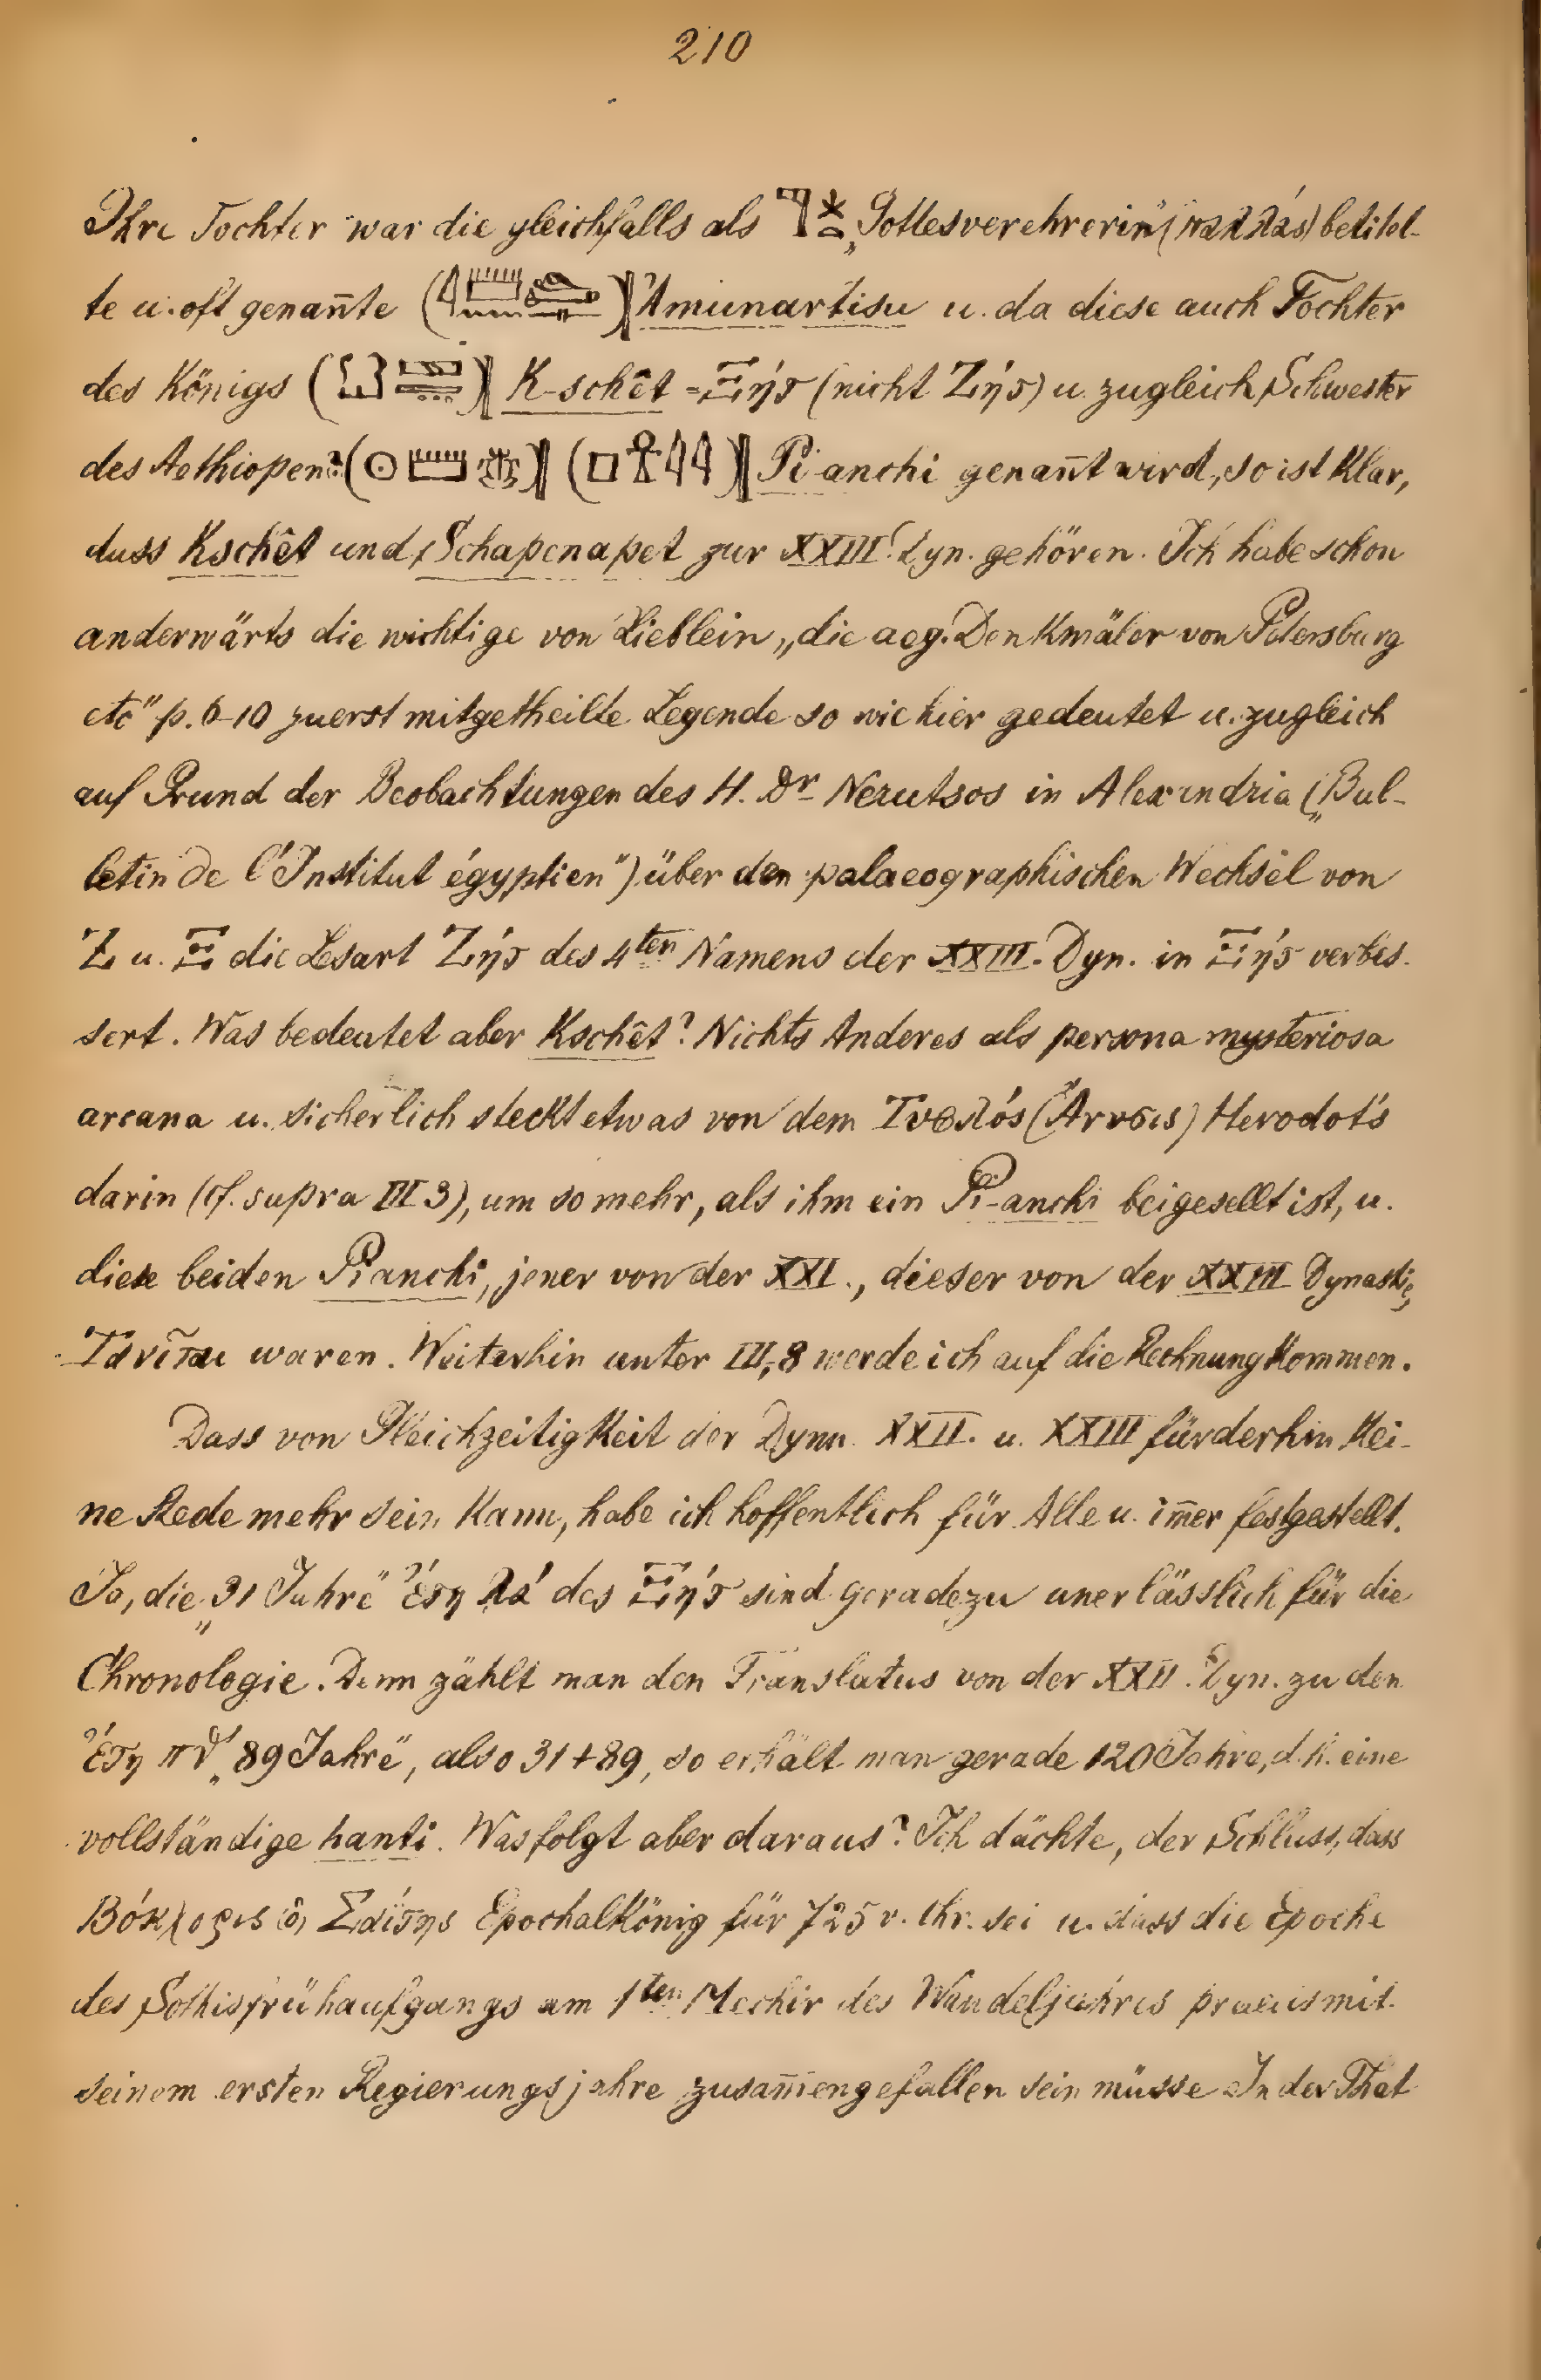 210
Ihre Tochter war die gleichfalls als 𓊹𓇼 „Gottesverehrerin“ (παλλάς) betitel-
te u. oft genañte (𓇋𓏠𓈖𓂋𓏏𓊃) Amunartisu u. da diese auch Tochter
des Königs ( ) K-schêt = Ξήτ (nicht Ζήτ) u. zugleich Schwester
des Aethiopen: (𓇳𓏠𓆣) (𓊪𓋹𓇋𓇋) Pi-anchi genañt wird, so ist klar,
dass Kschêt und Schapenapet zur XXIII. Dyn. gehören. Ich habe schon
anderwärts die wichtige von Lieblein „die aeg. Denkmäler von Petersburg
etc“ p. 6-10 zuerst mitgetheilte Legende so wie hier gedeutet u. zugleich
auf Grund der Beobachtungen des H. Dr Nerutsos in Alexandria („Bul-
letin de l'Institut égyptien“) über den palaeographischen Wechsel von
Ζ u. Ξ die Lesart Ζήτ des 4ten Namens der XXIII. Dyn. in Ξήτ verbes-
sert. Was bedeutet aber Kschêt? Nichts Anderes als persona mysteriosa
arcana u. sicherlich steckt etwas von dem Τυφλός (Ἄνυσις) Herodot's
darin (cf. supra III 3), um so mehr, als ihm ein Pi-anchi beigesellt ist, u.
diese beiden Pianchi, jener von der XXI., dieser von der XXIII Dynastie,
Τανῖται waren. Weiterhin unter III, 8 werde ich auf die Rechnung kommen.
Dass von Gleichzeitigkeit der Dynn. XXII. u. XXIII fürderhin kei-
ne Rede mehr sein kann, habe ich hoffentlich für Alle u. im̄er festgestellt.
Ja, die „31 Jahre“ ἔτη λα' des Ξήτ sind geradezu unerlässlich für die
Chronologie. Denn zählt man den Translatus von der XXII. Dyn. zu den
ἔτη πθ' „89 Jahre“, also 31 + 89, so erhält man gerade 120 Jahre, d. h. eine
vollständige hanti. Was folgt aber daraus? Ich dächte, der Schluss, dass
Βόκχορις ὁ Σαΐτης Epochalkönig für 725 v. Chr. sei u. dass die Epoche
des Sothisfrühaufgangs am 1ten Mechir des Wandeljahres praecis mit
seinem ersten Regierungsjahre zusam̄engefallen sein müsse. In der That